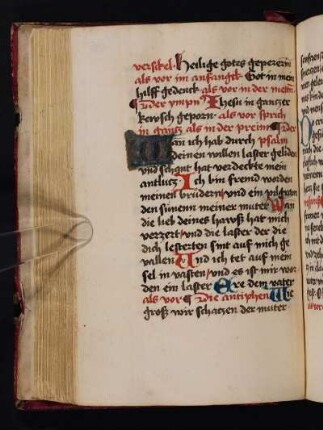 versikel. Heilige gotes gepererin
als vor im anfangk Got in mein
hilff gedenck als vor in der metten
Der ympn Jhesu in gantzer
kewsch geporn. als vor sprich
in gantz als in der preim Der
Wan ich hab durch psalm
deinen willen laster geliden
und schant hat verdeckt mein
antlutz Ich bin fremd worden
meinen brudern und ein pilgram
den sünenn meiner muter Wan
die lieb deines hawss hat mich
verzert und die laster der die
dich lesterten sint auf mich ge
vallen Und ich tet auf mein
sel in vasten und es ist mir wor
den ein laster Ere dem vater
als vor Die antiphen Wie
groß wir schatzen der muter